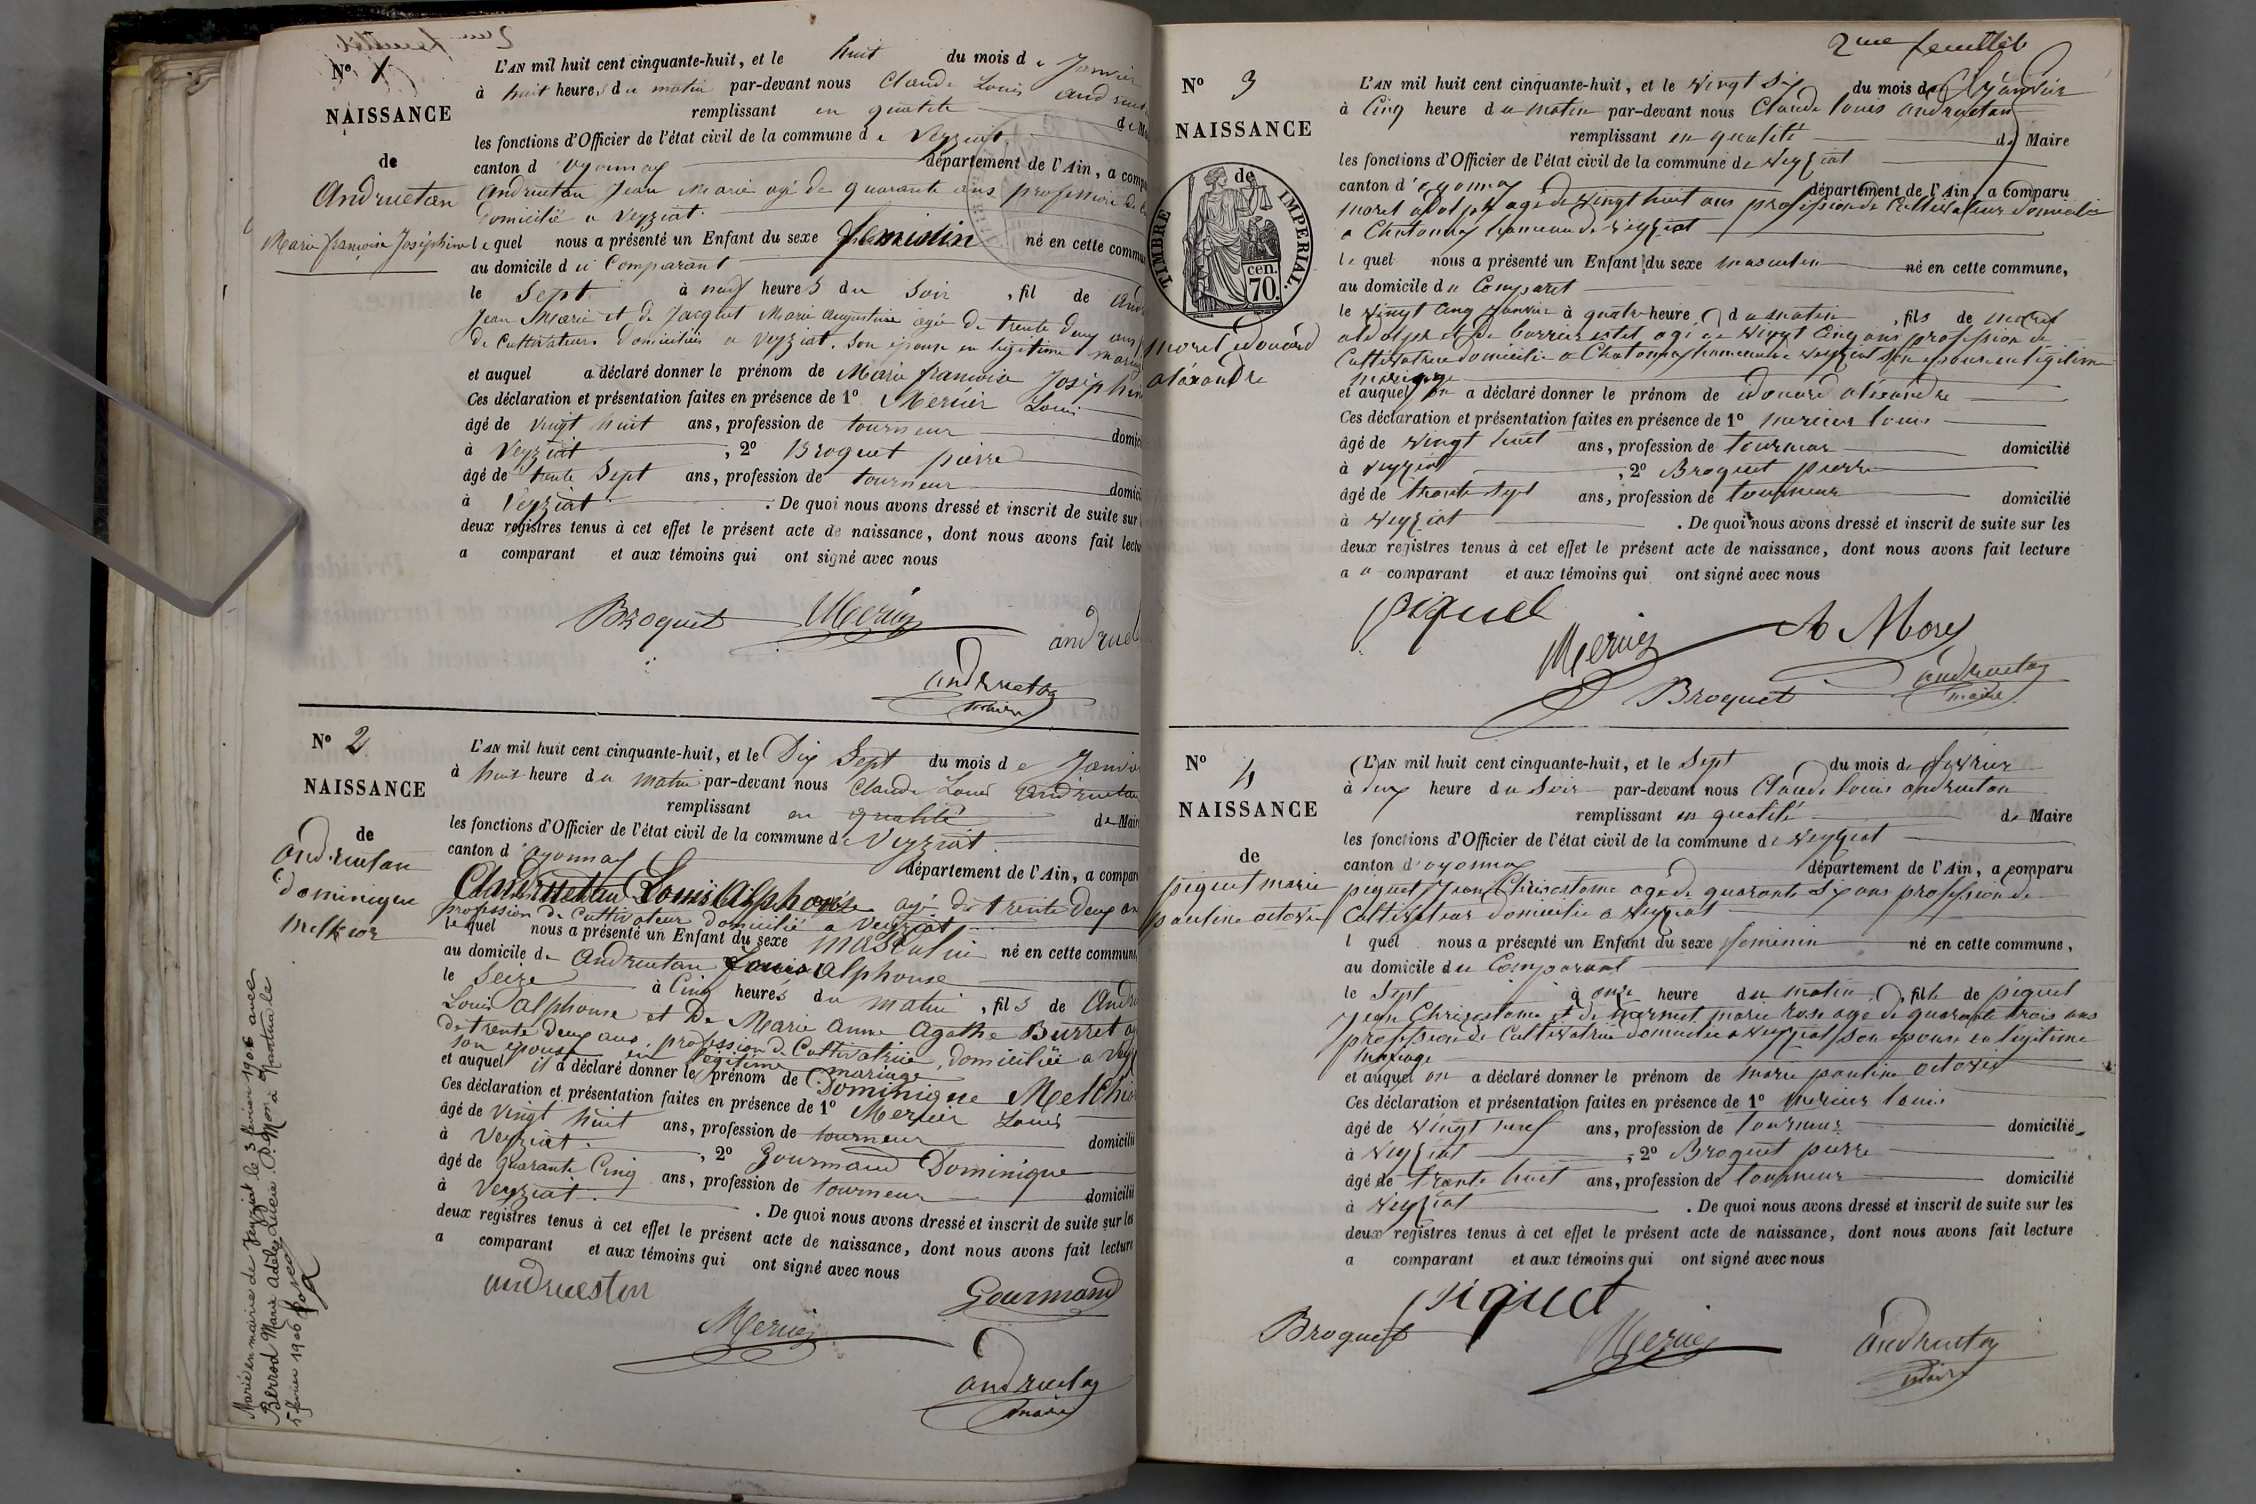 Nº 1
NAISSANCE
de
Andruetan
Marie françoise Joséphine
L'AN mil huit cent cinquante-huit, et le huit du mois de Janvier
à huit heures du matin par-devant nous Claude Louis Andruetan
remplissant en qualité de Maire
les fonctions d'Officier de l'état civil de la commune de Veyziat
canton d'oyonnax département de l'Ain, a comparu
Andruetan Jean Marie agé de quarante ans profession de
domicilié a Veyziat.
lequel nous a présenté un Enfant du sexe feminin né en cette commune
au domicile du Comparant
le Sept à neuf heures du Soir, fil de
Jean Marie et de Jacquet Marie augustine agée de trente deux ans
de Cultivateurs domiciliés a Veyziat. Son épouse en légitime mariage
et auquel a déclaré donner le prénom de Marie françoise Joséphine
Ces déclaration et présentation faites en présence de 1º Mercier Louis
âgé de vingt huit ans, profession de tourneur domicilié
à Veyziat, 2º Broquet pierre
âgé de trente Sept ans, profession de tourneur domicilié
à Veyziat. De quoi nous avons dressé et inscrit de suite sur
deux registres tenus à cet effet le présent acte de naissance, dont nous avons fait lecture
a comparant et aux témoins qui ont signé avec nous
Broquet Mercier
andruetan
maire
Nº 2
NAISSANCE
de
andruetan
dominique
melkior
L'AN mil huit cent cinquante-huit, et le Dix Sept du mois de Janvier
à huit heure du matin par-devant nous Claude Louis Andruetan
remplissant en qualité de Maire
les fonctions d'Officier de l'état civil de la commune de Veyziat.
canton d'oyonnax département de l'Ain, a comparu
Louis Alphonse agé de trente deux ans
profession de Cultivateur domicilié a Veyziat
lequel nous a présenté un Enfant du sexe masculin né en cette commune,
au domicile de Andruetan Louis alphonse
le Seize à Cinq heures du matin, fils de
Louis alphonse et De Marie Anne Agathe Burret
de trente deux ans, profession de Cultivatrice, domiciliée a
son épouse en légitime mariage
et auquel il a déclaré donner le prénom de Dominique Melchior
Ces déclaration et présentation faites en présence de 1º Mercier Louis
âgé de vingt huit ans, profession de tourneur domicilié
à Veyziat, 2º Gourmand Dominique
âgé de quarante Cinq ans, profession de tourneur domicilié
à Veyziat. De quoi nous avons dressé et inscrit de suite sur les
deux registres tenus à cet effet le présent acte de naissance, dont nous avons fait lecture
a comparant et aux témoins qui ont signé avec nous
andrueston
Gourmand
Mercier
andruetan
maire
Marié en mairie de Veyziat le 3 février 1906 avec
Berrod Marie Adèle Lucie. D. Mon à Nantua le
5 février 1906
2me feuillet
Nº 3
NAISSANCE
de
TIMBRE IMPERIAL.
cen.
70.
morel edouard
aléxandre
L'AN mil huit cent cinquante-huit, et le vingt Six du mois de Janvier
à Cinq heure du matin par-devant nous Claude louis andruetan
remplissant en qualité de Maire
les fonctions d'Officier de l'état civil de la commune de veyziat
canton d'oyonnax département de l'Ain, a comparu
morel adolph agé de vingt huit ans profession de Cultivateur domicilié
a Chatonnax hameau de veyziat
lequel nous a présenté un Enfant du sexe masculin né en cette commune,
au domicile du Comparet
le vingt Cinq Janvier à quatre heure du matin, fils de morel
adolph et de agé de vingt Cinq ans profession de
Cultivatrice domicilie a Chatonnax hameau de veyziat Son epouse en legitime
mariage
et auquel on a déclaré donner le prénom de edouard aléxandre
Ces déclaration et présentation faites en présence de 1º mercier louis
âgé de vingt huit ans, profession de tourneur domicilié
à veyziat, 2º Broquet pierre
âgé de trante sept ans, profession de tourneur domicilié
à veyziat. De quoi nous avons dressé et inscrit de suite sur les
deux registres tenus à cet effet le présent acte de naissance, dont nous avons fait lecture
a u comparant et aux témoins qui ont signé avec nous
piquet
Mercier A Morel
Broquet andruetan
maire
Nº 4
NAISSANCE
de
piquet marie
pauline octavie
L'AN mil huit cent cinquante-huit, et le Sept du mois de fevrier
à deux heure du Soir par-devant nous Claude louis andruetan
remplissant en qualité de Maire
les fonctions d'Officier de l'état civil de la commune de veyziat
canton d'oyonnax département de l'Ain, a comparu
piquet Jean Chrisostome age de quarante Six ans profession de
Cultivateur domicilie a veyziat
l quel nous a présenté un Enfant du sexe feminin né en cette commune,
au domicile du Comparant
le Sept à onze heure du matin, fille de piquet
Jean Chrisostome et de marmet marie rose age de quarante trois ans
profession de Cultivatrice domicilie a veyziat Son epouse en legitime
mariage
et auquel on a déclaré donner le prénom de marie pauline octavie
Ces déclaration et présentation faites en présence de 1º mercier louis
âgé de vingt neuf ans, profession de tourneur domicilié
à veyziat, 2º Broquet pierre
âgé de trante huit ans, profession de tourneur domicilié
à veyziat. De quoi nous avons dressé et inscrit de suite sur les
deux registres tenus à cet effet le présent acte de naissance, dont nous avons fait lecture
a comparant et aux témoins qui ont signé avec nous
piquet
Broquet Mercier andruetan
maire